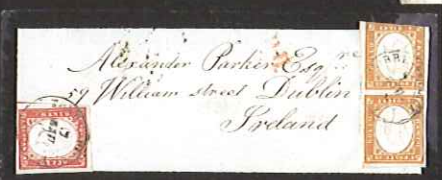 Alexander Parker Esqre
59 William street Dublin
Ireland